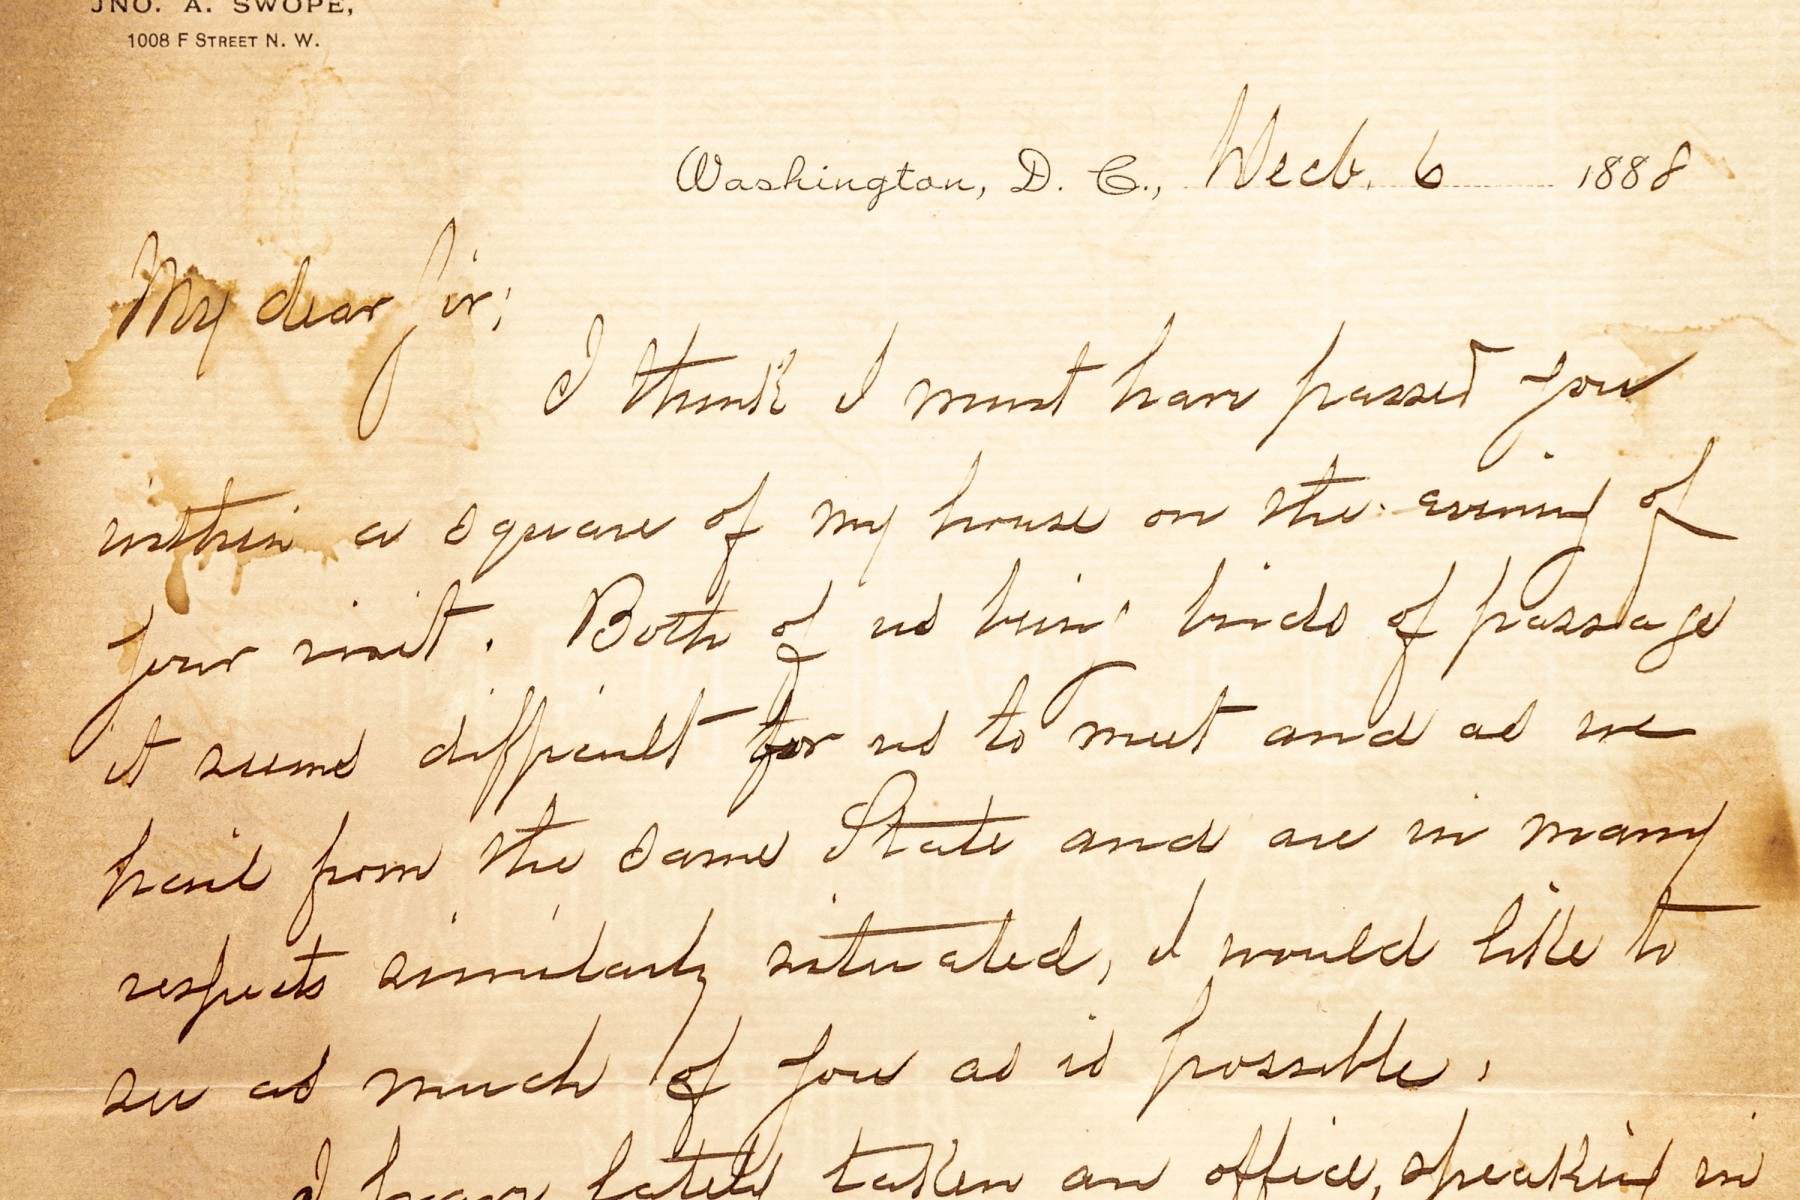 JNO. A. SWOPE,
1008 F STREET N. W.
Washington, D. C., Decb. 6 1888
My dear Sir;
I think I must have passed you
within a square of my house on the evening of
your visit. Both of us being birds of passage
it seems difficult for us to meet and as we
hail from the same State and are in many
respects similarly situated, I would like to
see as much of you as is possible.
I have lately taken an office, speaking in